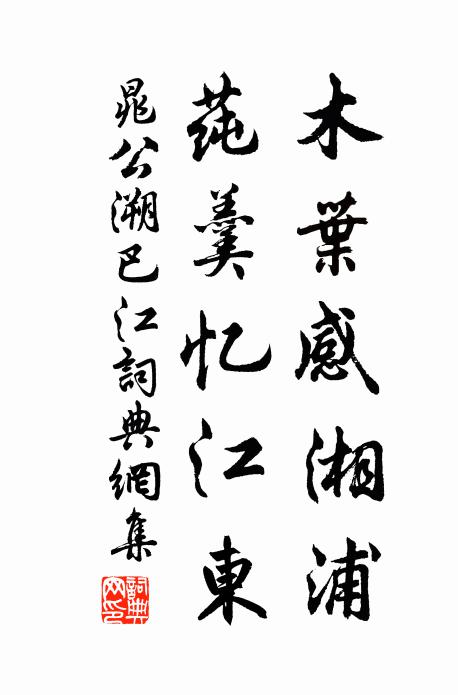 木葉感湘浦
莼羹忆江東
晁公溯巴江詞典網集
詞典網印